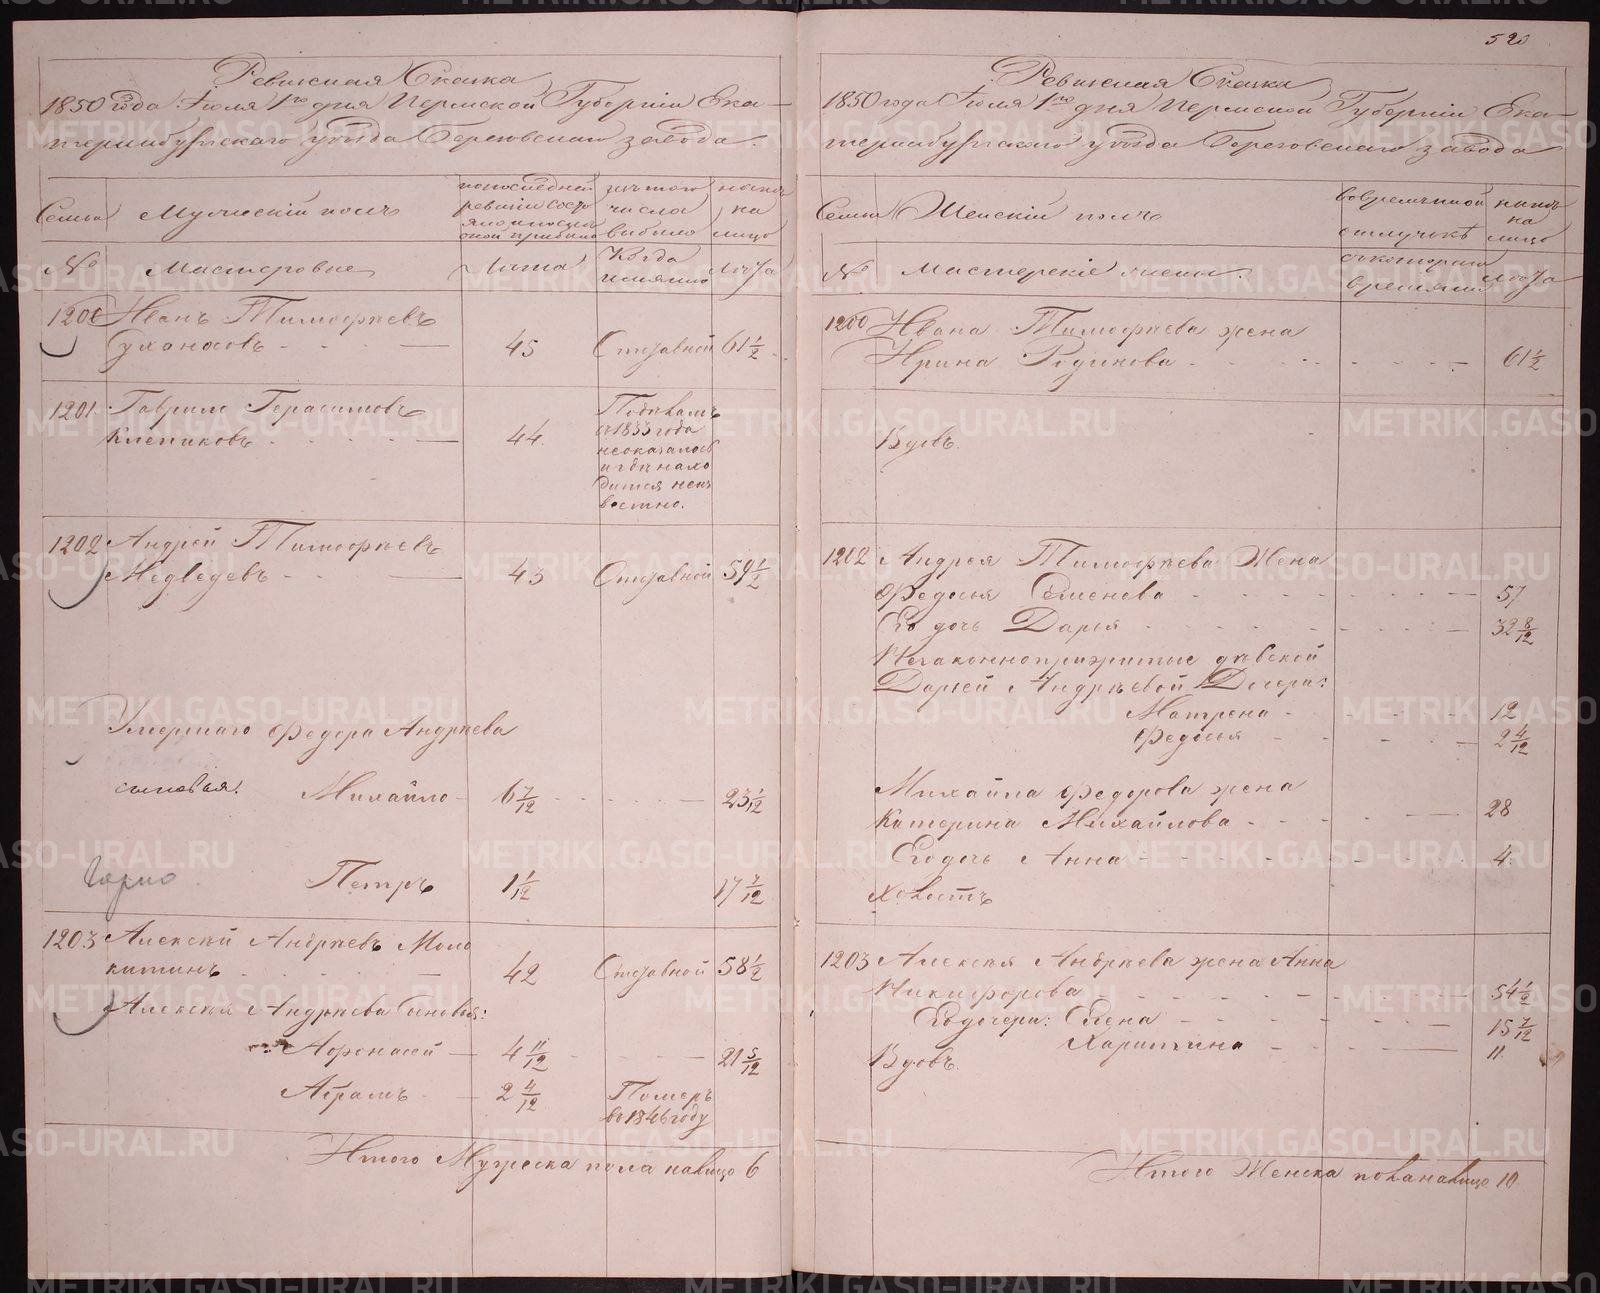 520
Ревизская Сказка
1850 года Июля 1го дня Пермской Губернiи Ека-
теринбургскаго уѣзда Березовскаго завода.
Семьи
Мужескiй полъ
по последней
ревизiи состо
яло и после
оной прибыло
изъ того
числа
выбыло
ныне
на
лицо
№
Мастеровые
Лѣта
Когда
имянно
Лѣта
1200
Иванъ Тимофѣевъ
45
Отставной
61 1/2
1201
Гаврило Герасимовъ
Клепиковъ
44
съ 1833 года
неоказалось
и гдѣ нахо
дится неиз
вестно.
1202
Андрей Тимофѣевъ
Медведевъ
43
Отставной
59 1/2
Умершаго Федора Андрѣева
сыновья:
Михайло
6 7/12
23 1/12
Петръ
1 1/12
17 7/12
1203
Алексѣй Андрѣевъ Моло
китинъ
42
Отставной
58 1/2
Алексѣя Андрѣева Сыновья:
Афонасей
4 11/12
21 5/12
Абрамъ
2 4/12
Померъ
въ 1846 году
Итого Мужеска пола налицо 6
Ревизская Сказка
1850 года Июля 1го дня Пермской Губернiи Ека-
теринбургскаго уѣзда Березовскаго завода
Семьи
Женскiй полъ
во временной
отлучкѣ
нынѣ
на
лицо
№
Мастерскiе жены.
съ котораго
времяни
Лѣта
1200
Ивана Тимофѣева жена
Ирина Родионова
61 1/2
Вдовъ.
1202
Андрея Тимофѣева Жена
Федосья Семенова
57
Его дочь Дарья
32 8/12
Незаконноприжитые дѣвской
Дарьей Андрѣевой Дочери:
Матрена
12
Федосья
2 4/12
Михайла Федорова жена
Катерина Михайлова
28
Его дочь Анна
4
Холостъ
1203
Алексѣя Андрѣева жена Анна
Никифорова
54 1/2
Его дочери: Елена
15 7/12
Харитина
11
Вдовъ.
Итого Женска пола налицо 10
METRIKI.GASO-URAL.RU